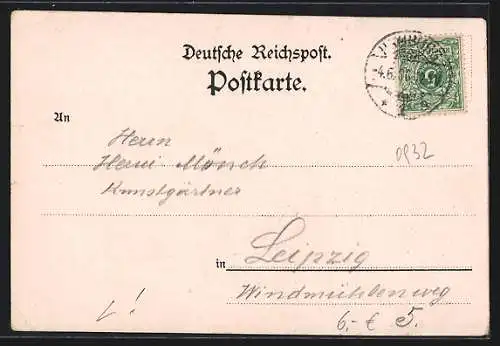 Deutsche Reichspost.
Postkarte.
An
Herrn
Mönsch
Kunstgärtner
in Leipzig
Windmühlenweg 5.
0932
6,- €